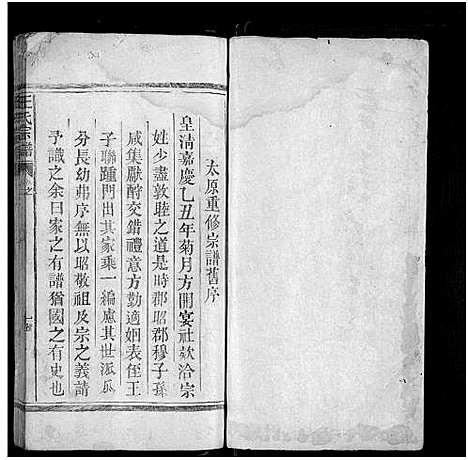 太原重修宗譜舊序
皇清嘉慶乙丑年菊月方開宴社欵洽宗
姓少盡敦睦之道是時郡昭郡穆子孫
咸集獻酧交錯禮意方勤適姻表侄王
子聯踵門出其家乗一編慮其世派瓜
分長幼弗序無以昭敬祖及宗之義請
予識之余曰家之有譜猶國之有史也
王氏宗譜